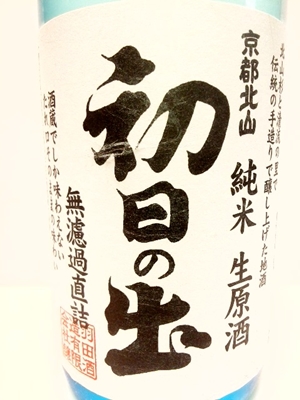 北山杉と清流の里で
伝統の手造りで醸し上げた地酒
京都北山 純米 生原酒
初日の出
無濾過直詰
酒蔵でしか味わえない
そのままの味わい
羽田酒
造有限
会社醸